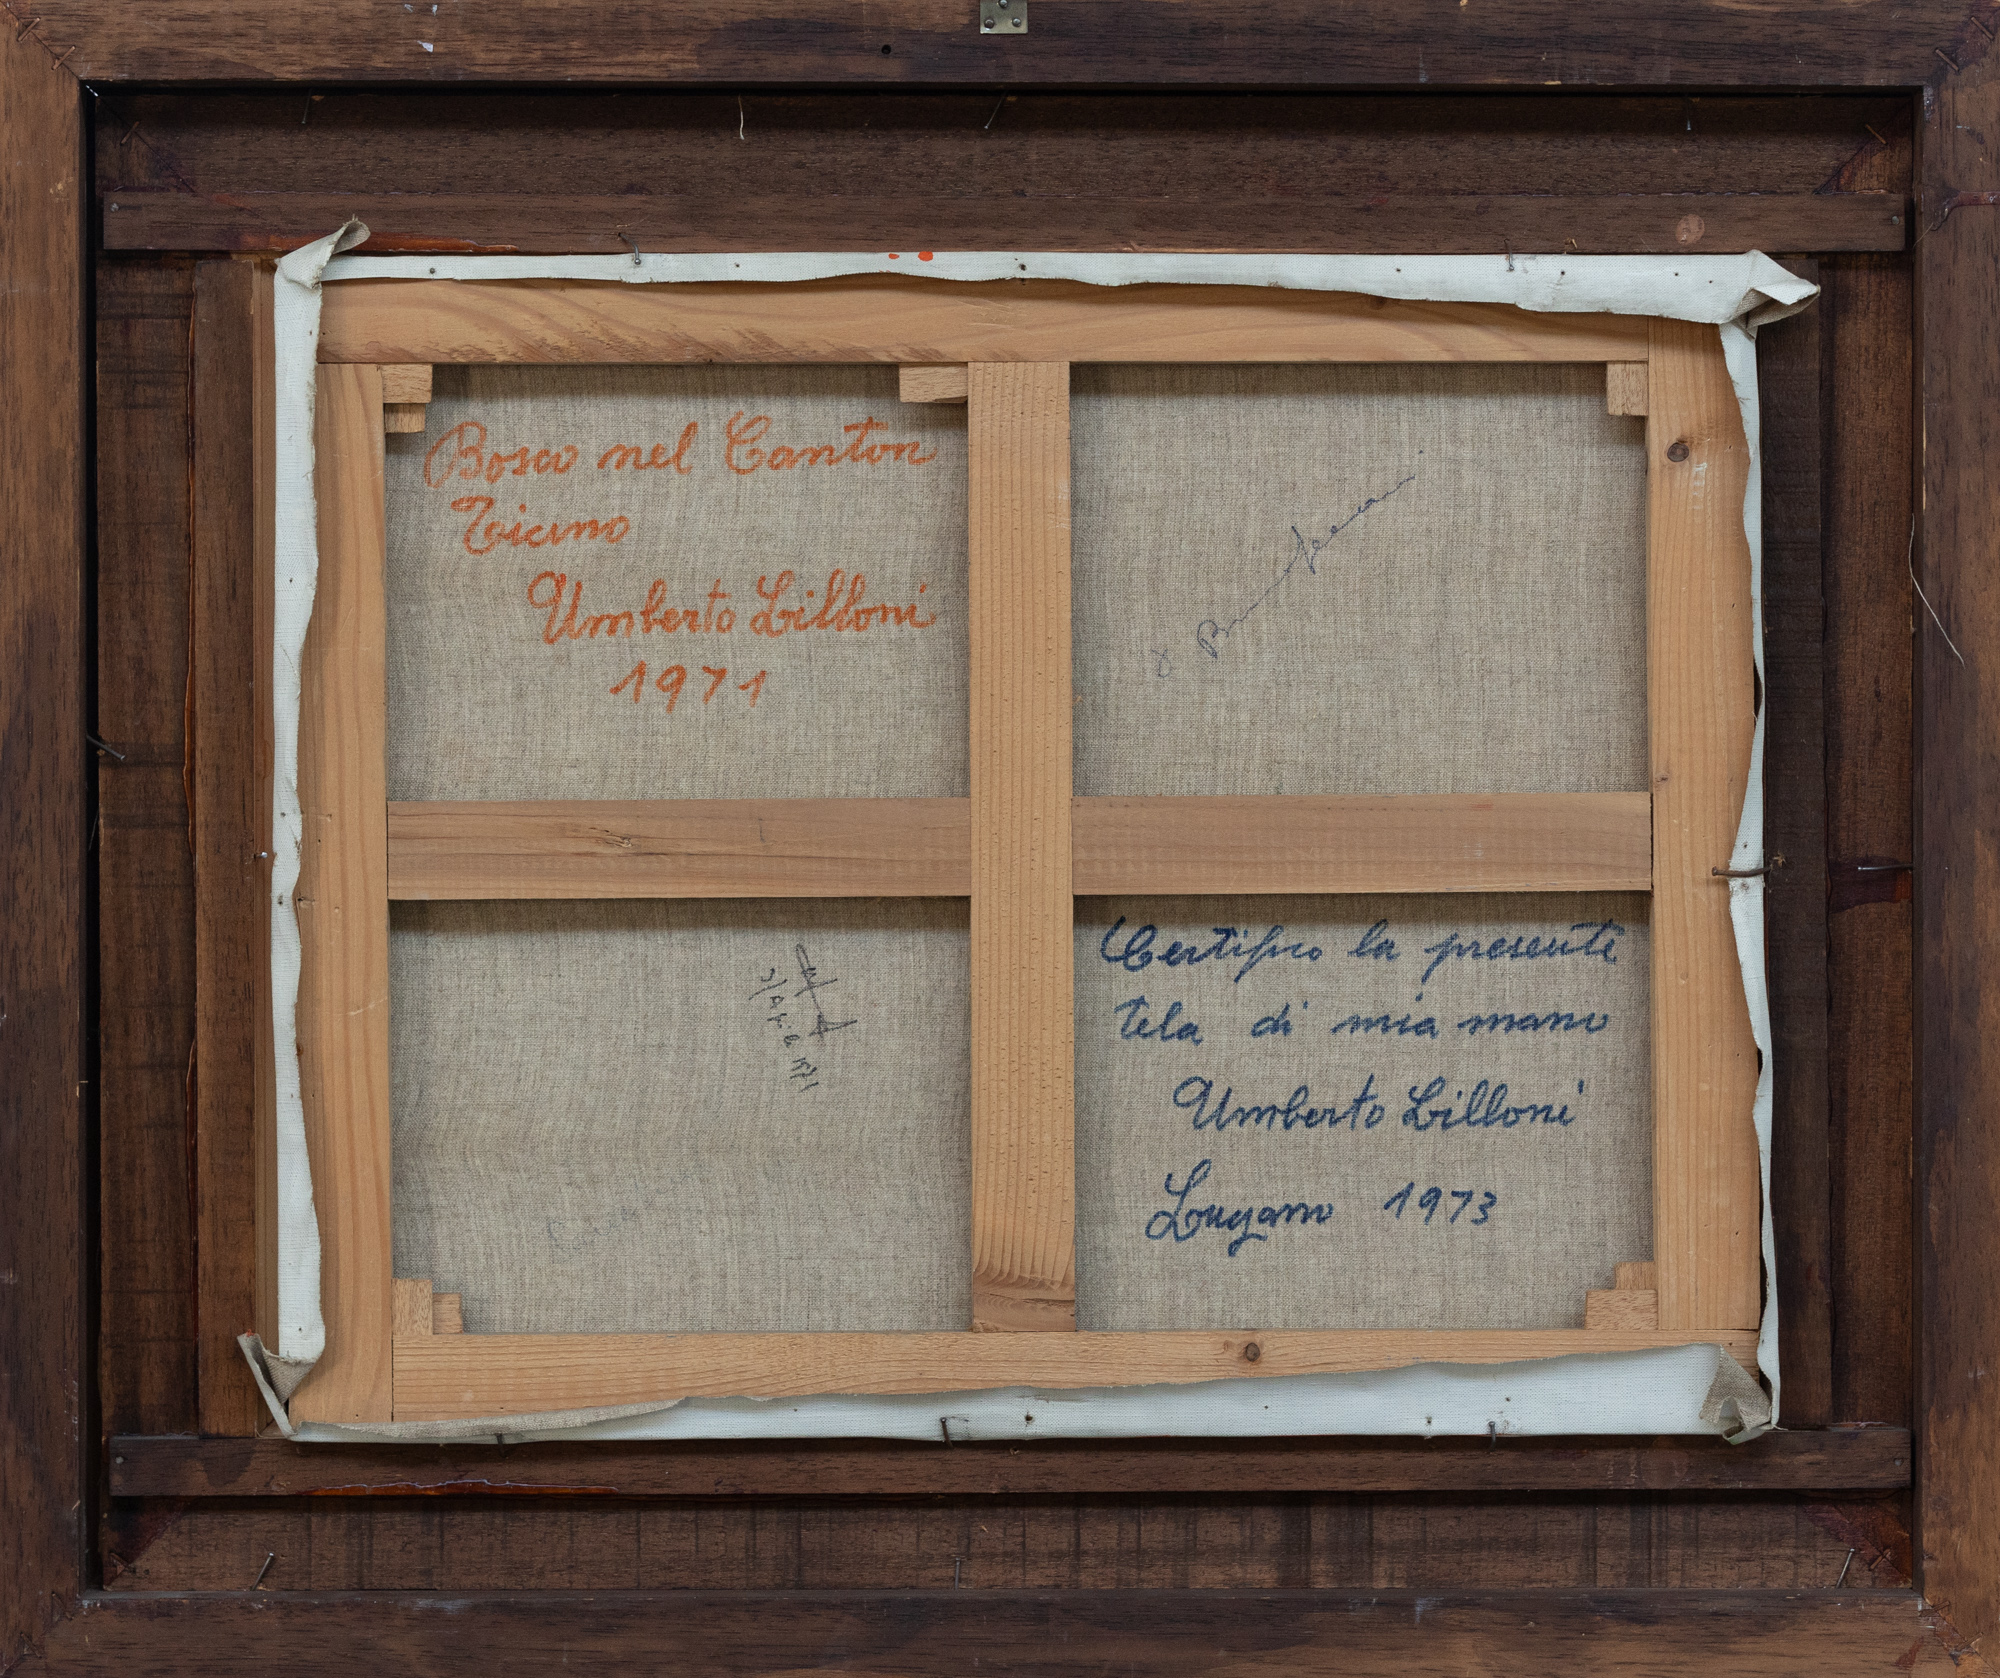 Bosco nel Canton
Ticino
Umberto Lilloni
1971
Certifico la presente
tela di mia mano
Umberto Lilloni
Lugano 1973